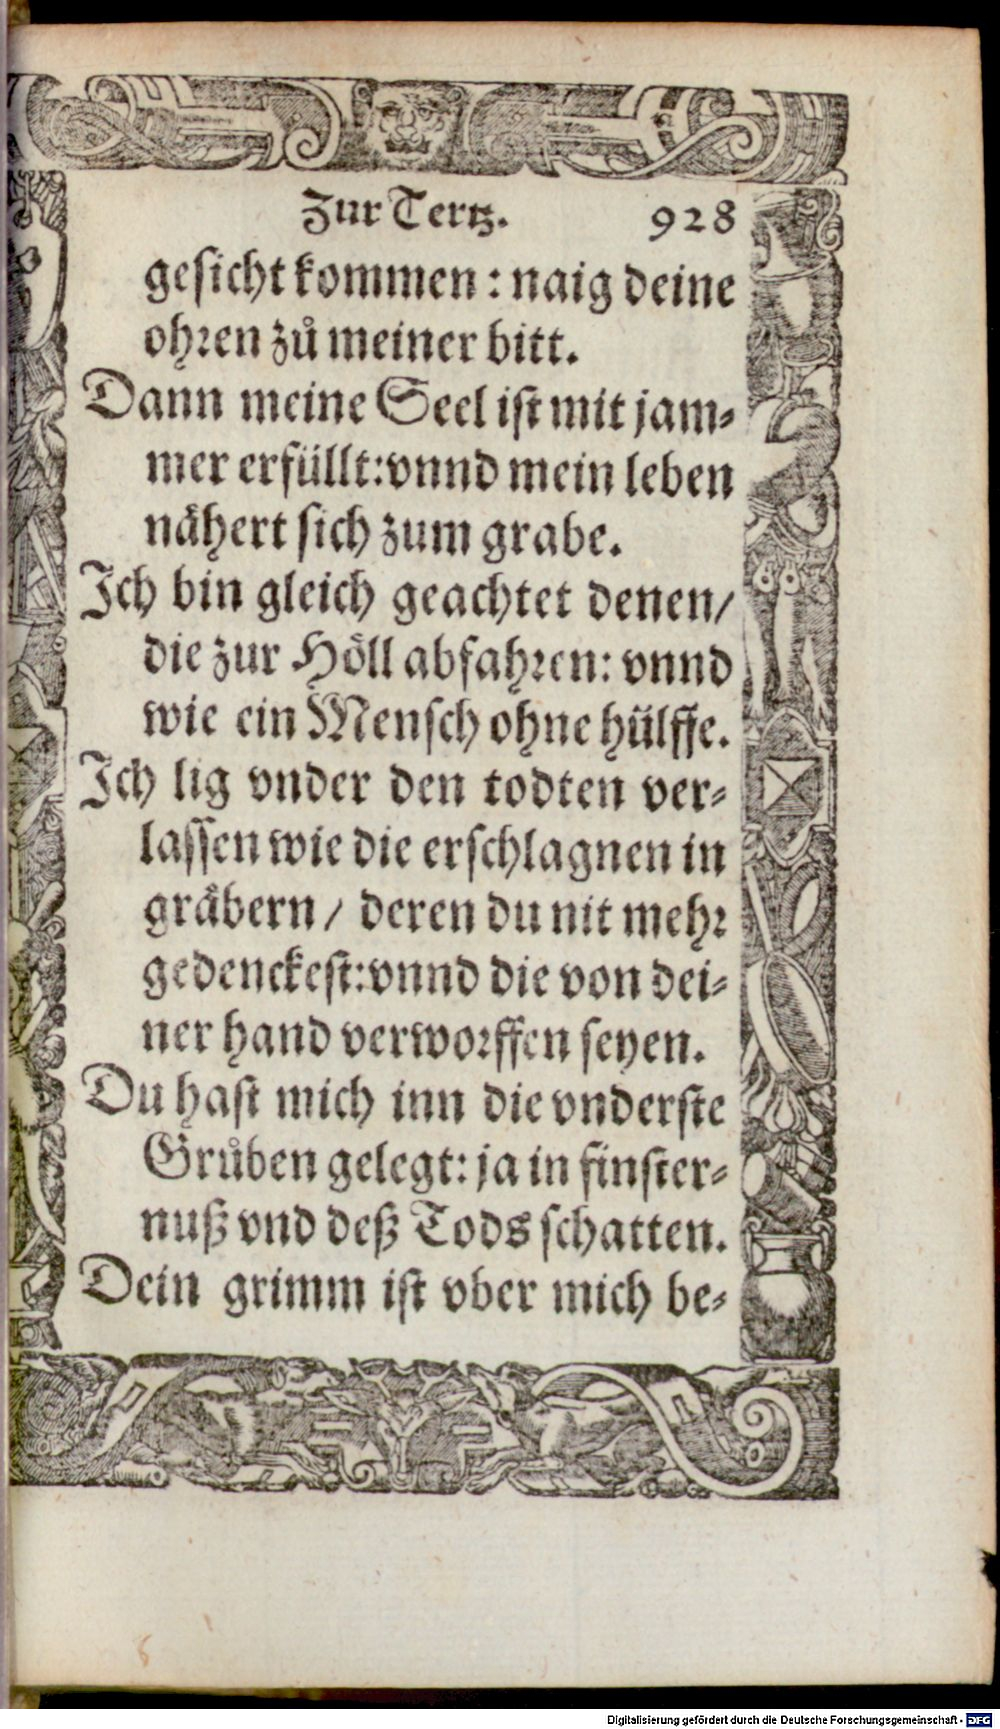 Zur Tertz. 928
gesicht kommen: naig deine
ohren zů meiner bitt.
Dann meine Seel ist mit jam⸗
mer erfüllt: vnnd mein leben
nähert sich zum grabe.
Ich bin gleich geachtet denen/
die zur Höll abfahren: vnnd
wie ein Mensch ohne hülffe.
Ich lig vnder den todten ver⸗
lassen wie die erschlagnen in
gräbern / deren du nit mehr
gedenckest: vnnd die von dei⸗
ner hand verworffen seyen.
Du hast mich inn die vnderste
Grůben gelegt: ja in finster⸗
nuß vnd deß Tods schatten.
Dein grimm ist vber mich be⸗
Digitalisierung gefördert durch die Deutsche Forschungsgemeinschaft - DFG